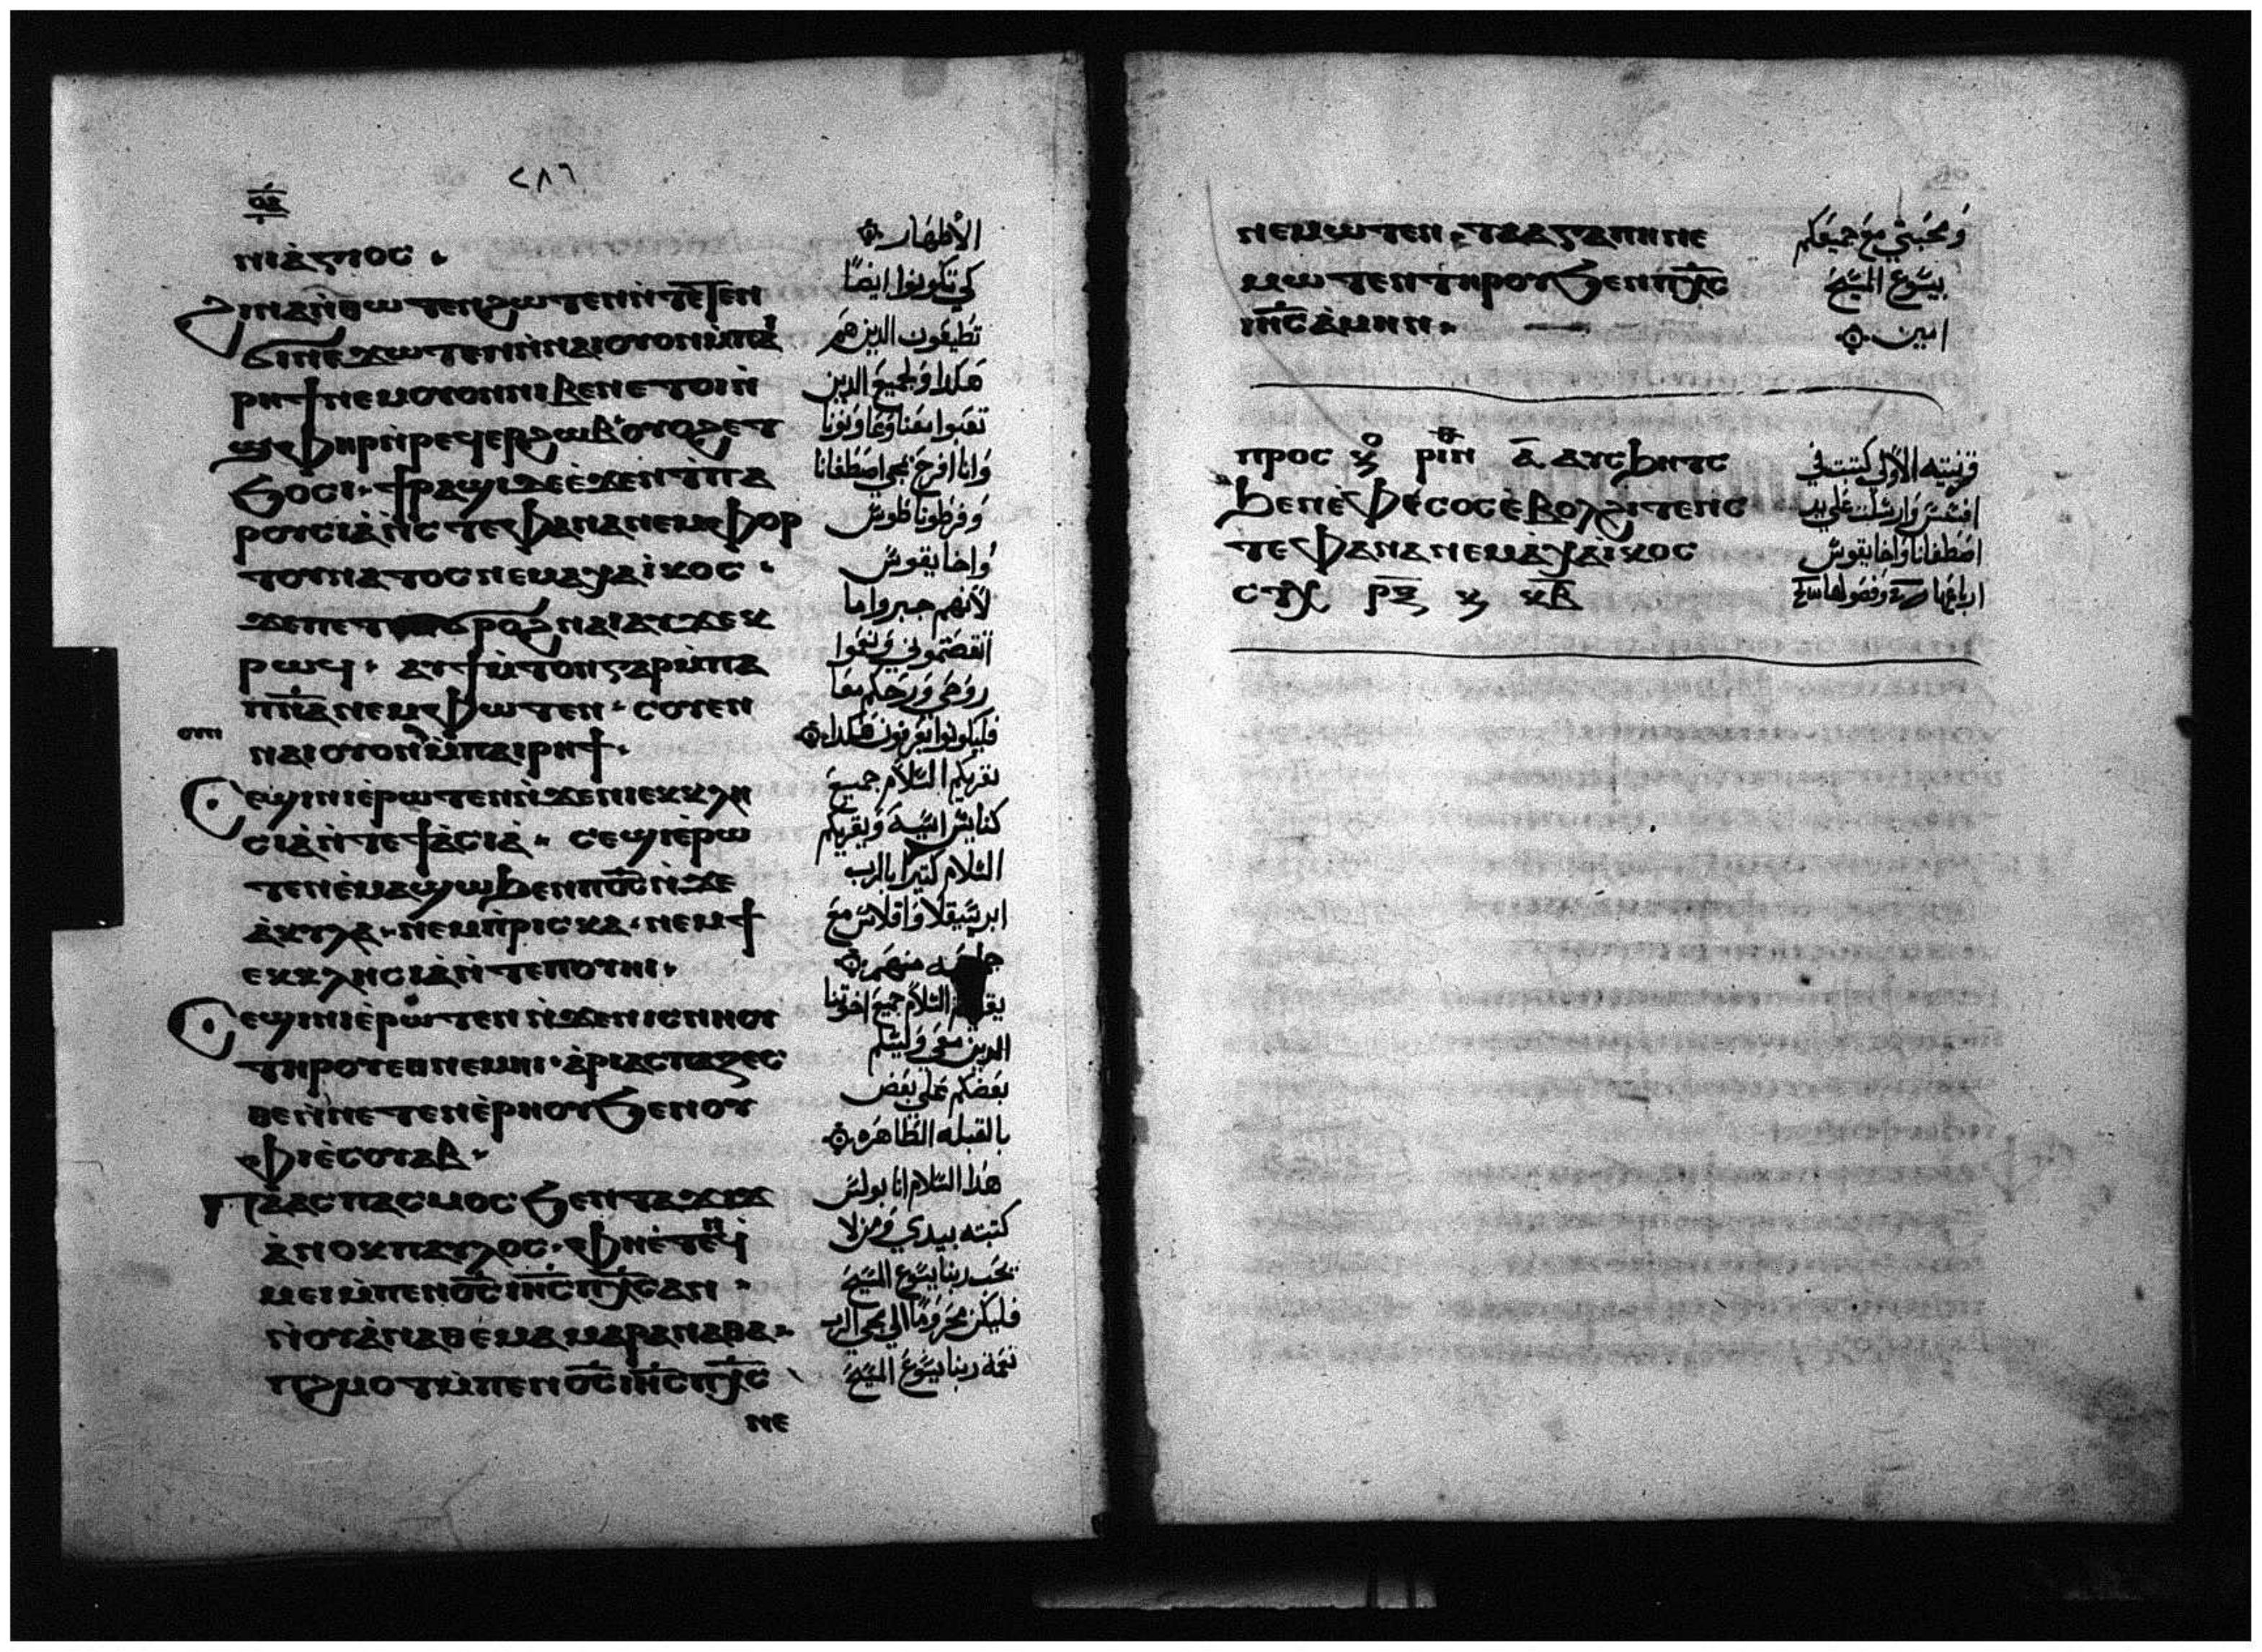 ⲟⲉ
ⲛⲓⲁ̀ⲅⲓⲟⲥ
ϩⲓⲛⲁ ⲛ̀ⲑⲱⲧⲉⲛ ϩⲱⲧⲉⲛ ⲛ̀ⲧⲉⲧⲉⲛ
ϭⲛⲉϫⲱⲧⲉⲛ ⲛ̀ⲛⲁⲓⲟⲩⲟⲛ ⲙ̀ⲡⲁⲓ
ⲣⲏϯ ⲛⲉⲙ ⲟⲩⲟⲛ ⲛⲓⲃⲉⲛ ⲉⲧⲟⲓ ⲛ̀
ϣⲫⲏⲣ ⲛ̀ⲣⲉϥⲉⲣϩⲱⲃ ⲟⲩⲟϩ ⲉⲧ
ϧⲟⲥⲓ ϯⲣⲁϣⲓ ⲇⲉ ⲉ̀ϫⲉⲛ ⲧ̀ⲡⲁ
ⲣⲟⲩⲥⲓⲁ ⲛ̀ⲥⲧⲉⲫⲁⲛⲁ ⲛⲉⲙ ⲫⲟⲣ
ⲧⲟⲩⲛⲁⲧⲟⲥ ⲛⲉⲙ ⲁⲭⲁⲓ̈ⲕⲟⲥ
ϫⲉ ⲡⲉⲧⲉⲛϭⲣⲟϩ ⲛⲁⲓ ⲁⲩϫⲉⲕ
ⲣⲱϥ ⲁⲩϯⲙ̀ⲧⲟⲛ ⲅⲁⲣ ⲙ̀ⲡⲁ
ⲡ̅ⲛ̅ⲁ̅ ⲛⲉⲙ ⲫⲱⲧⲉⲛ ⲥⲟⲩⲉⲛ
ⲟⲩⲛ
ⲛⲁⲓⲟⲩⲟⲛ ⲙ̀ⲡⲁⲓⲣⲏϯ
Ⲥⲉϣⲓⲛⲓ ⲉ̀ⲣⲱⲧⲉⲛ ⲛ̀ϫⲉ ⲛⲓⲉⲕⲕⲗⲏ
ⲥⲓⲁ ⲛ̀ⲧⲉ ϯⲁ̀ⲥⲓⲁ ⲥⲉϣⲓⲉ̀ⲣⲱ
ⲧⲉⲛ ⲉ̀ⲙⲁϣⲱ ϧⲉⲛ ⲡ⳪ ⲛ̀ϫⲉ
ⲁ̀ⲕⲩⲗⲁ ⲛⲉⲙ ⲡ̀ⲣⲓⲥⲕⲁ ⲛⲉⲙ ϯ
ⲉⲕⲕⲗⲏⲥⲓⲁ ⲛ̀ⲧⲉ ⲡⲟⲩⲏⲓ
Ⲥⲉϣⲓⲛⲓ ⲉ̀ⲣⲱⲧⲉⲛ ⲛ̀ϫⲉ ⲛⲓⲥⲛⲏⲟⲩ
ⲧⲏⲣⲟⲩ ⲉⲑⲛⲉⲙⲏⲓ ⲁ̀ⲣⲓⲁⲥⲡⲁⲍⲉⲥ
ⲑⲉ ⲛ̀ⲛⲉⲧⲉⲛⲉ̀ⲣⲏⲟⲩ ϧⲉⲛ ⲟⲩ
ⲫⲓ ⲉ̀ⲥⲟⲩⲁⲃ
Ⲡⲁⲁⲥⲡⲁⲥⲙⲟⲥ ϧⲉⲛ ⲧⲁϫⲓϫ
ⲁ̀ⲛⲟⲕ ⲡⲁⲩⲗⲟⲥ ⲫⲏ ⲉ̀ⲧⲉⲛϥ̀
ⲙⲉⲓ ⲙ̀ⲡⲉⲛⲟ̅ⲥ̅ ⲓⲏ̅ⲥ̅ ⲡⲭ̅ⲥ̅ ⲁⲛ
ⲛ̀ⲟⲩⲁ̀ⲛⲁⲑⲉⲙⲁ ⲙⲁⲣⲁⲛⲁⲑⲁ
ⲡϩⲙⲟⲧ ⲙ̀ⲡⲉⲛⲟ̅ⲥ̅ ⲓⲏ̅ⲥ̅ ⲡⲭ̅ⲥ̅
ⲛⲉ
٢٨٦
الاطهار
كي تكونوا ايضًا
تطيعون الذين هم
هكذا ولجميع الذين
وانا افرح بمجي اصطفانا
وفرطوناطوس
واخايقوس
لانهم جبروا ما
روحي وروحكم معا
فليكونوا تعرفون هكذا
تقريكم السلام جميع
كنايس اسيه ويقريكم
السلام كثيرا بالرب
ابرسقلا واقلاس مع
السلام جميع اخوتنا
الذين معي وليسلم
بعضكم على بعض
بالقبله الطاهره
هذا السلام انا بولس
كتبته بيدي ومن لا
يحب ربنا يسوع المسيح
فليكن محرومًا الى مجي الرب
نعمة ربنا يسوع المسيح
ⲛⲉⲙⲱⲧⲉⲛ ⲧⲁⲁⲅⲁⲡⲏ ⲛⲉ
ⲙⲱⲧⲉⲛ ⲧⲏⲣⲟⲩ ϧⲉⲛ ⲡⲭ̅ⲥ̅
ⲓⲏ̅ⲥ̅ ⲁ̀ⲙⲏⲛ
ومحبتي مع جميعكم
بيسوع المسيح
امين
ⲡⲣⲟⲥ ⲕⲟ ⲣⲓⲛ ⲁ̅ ⲁⲩⲥϧⲏⲧⲥ
ϧⲉⲛ ⲉ̀ⲫⲉⲥⲟⲥ ⲉ̀ⲃⲟⲗϩⲓⲧⲉⲛ ⲥ
ⲧⲉⲫⲁⲛⲁ ⲛⲉⲙ ⲁ̀ⲭⲁⲓ̈ⲕⲟⲥ
ⲥⲧⲭ ⲕ ⲕ̅ⲃ̅
قرنتيه الاولى كتبت في
افسس وارسلت على يد
اصطفانا واخايقوس